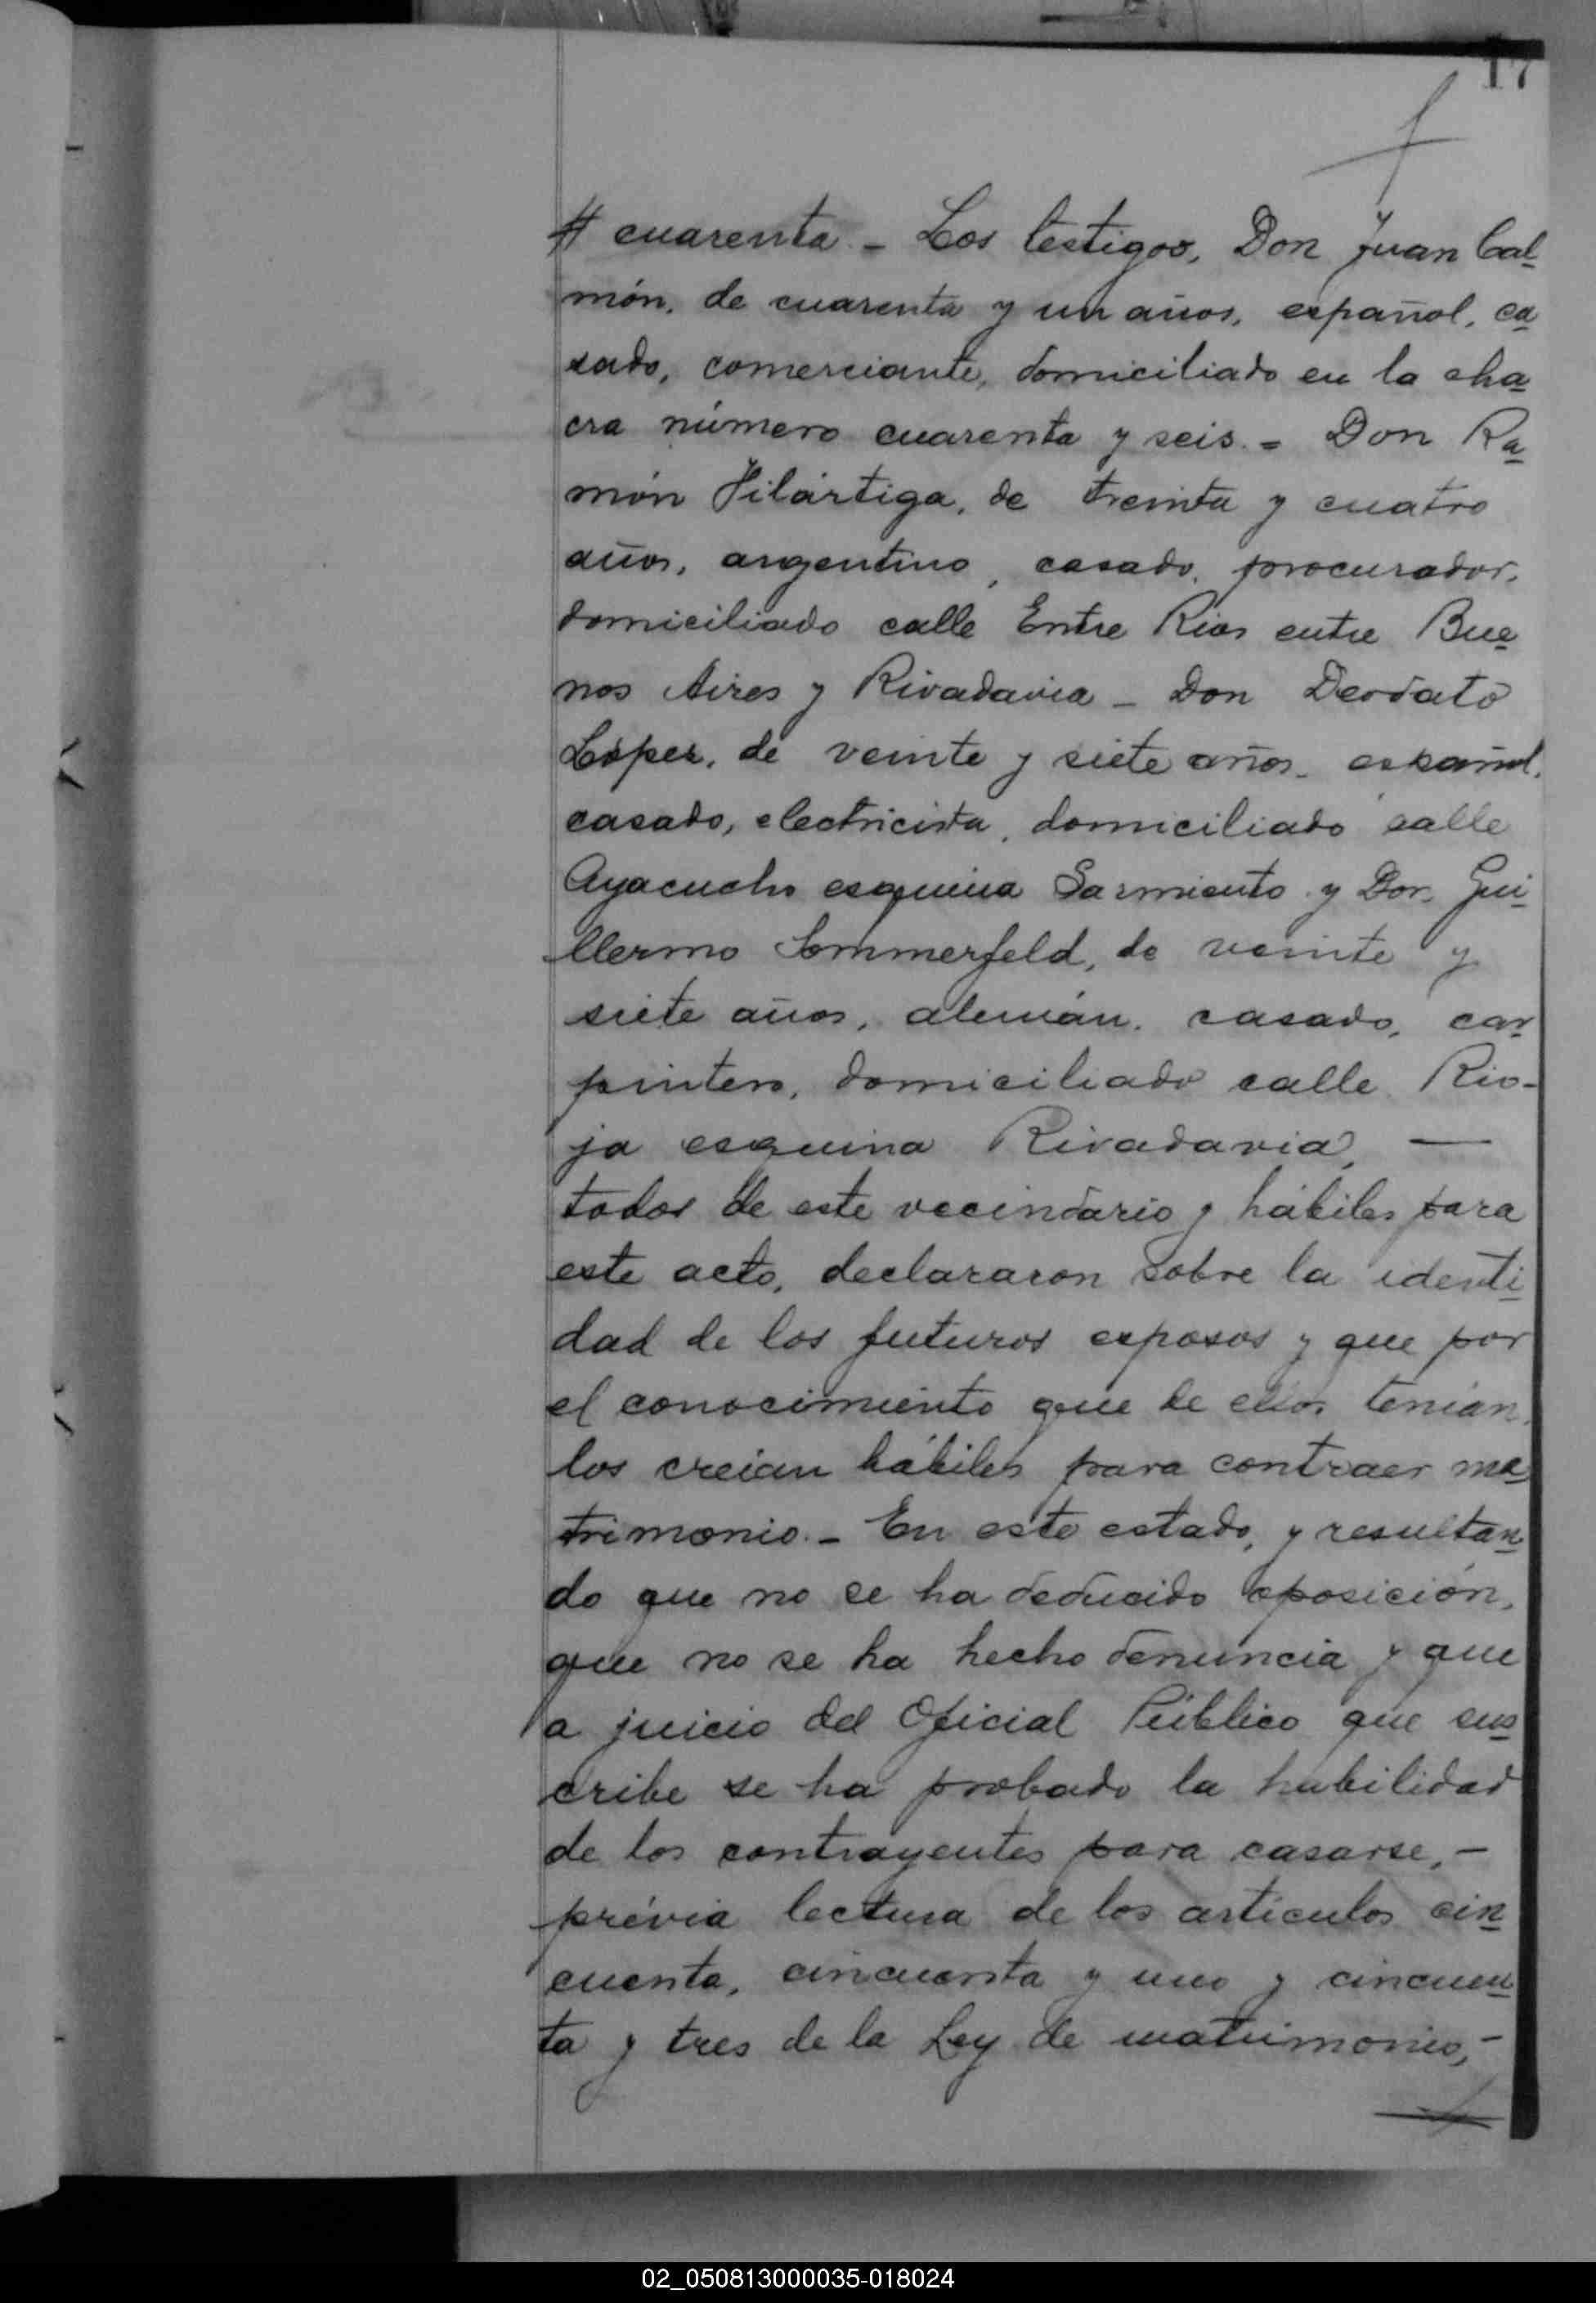 17
# cuarenta - Los testigos, Don Juan Cal-
món, de cuarenta y un años, español, ca
sado, comerciante, domiciliado en la cha
cra número cuarenta y seis. = Don Ra
món Vilártiga, de treinta y cuatro
años, argentino, casado, procurador,
domiciliado calle Entre Rios entre Bue
nos Aires y Rivadavia - Don Deodato
López, de veinte y siete años, español,
casado, electricista, domiciliado calle
Ayacucho esquina Sarmiento y Don Gui
llermo Sommerfeld, de veinte y
siete años, alemán, casado, car
pintero, domiciliado calle Rio-
ja esquina Rivadavia, —
todos de este vecindario y hábiles para
este acto, declararon sobre la identi
dad de los futuros esposos y que por
el conocimiento que de ellos tenían,
los creían hábiles para contraer ma
trimonio. - En este estado, y resultan
do que no se ha deducido oposición,
que no se ha hecho denuncia y que
a juicio del Oficial Público que sus
cribe se ha probado la habilidad
de los contrayentes para casarse, -
prévia lectura de los artículos cin
cuenta, cincuenta y uno y cincuen
ta y tres de la Ley de matrimonio, -
02_050813000035-018024